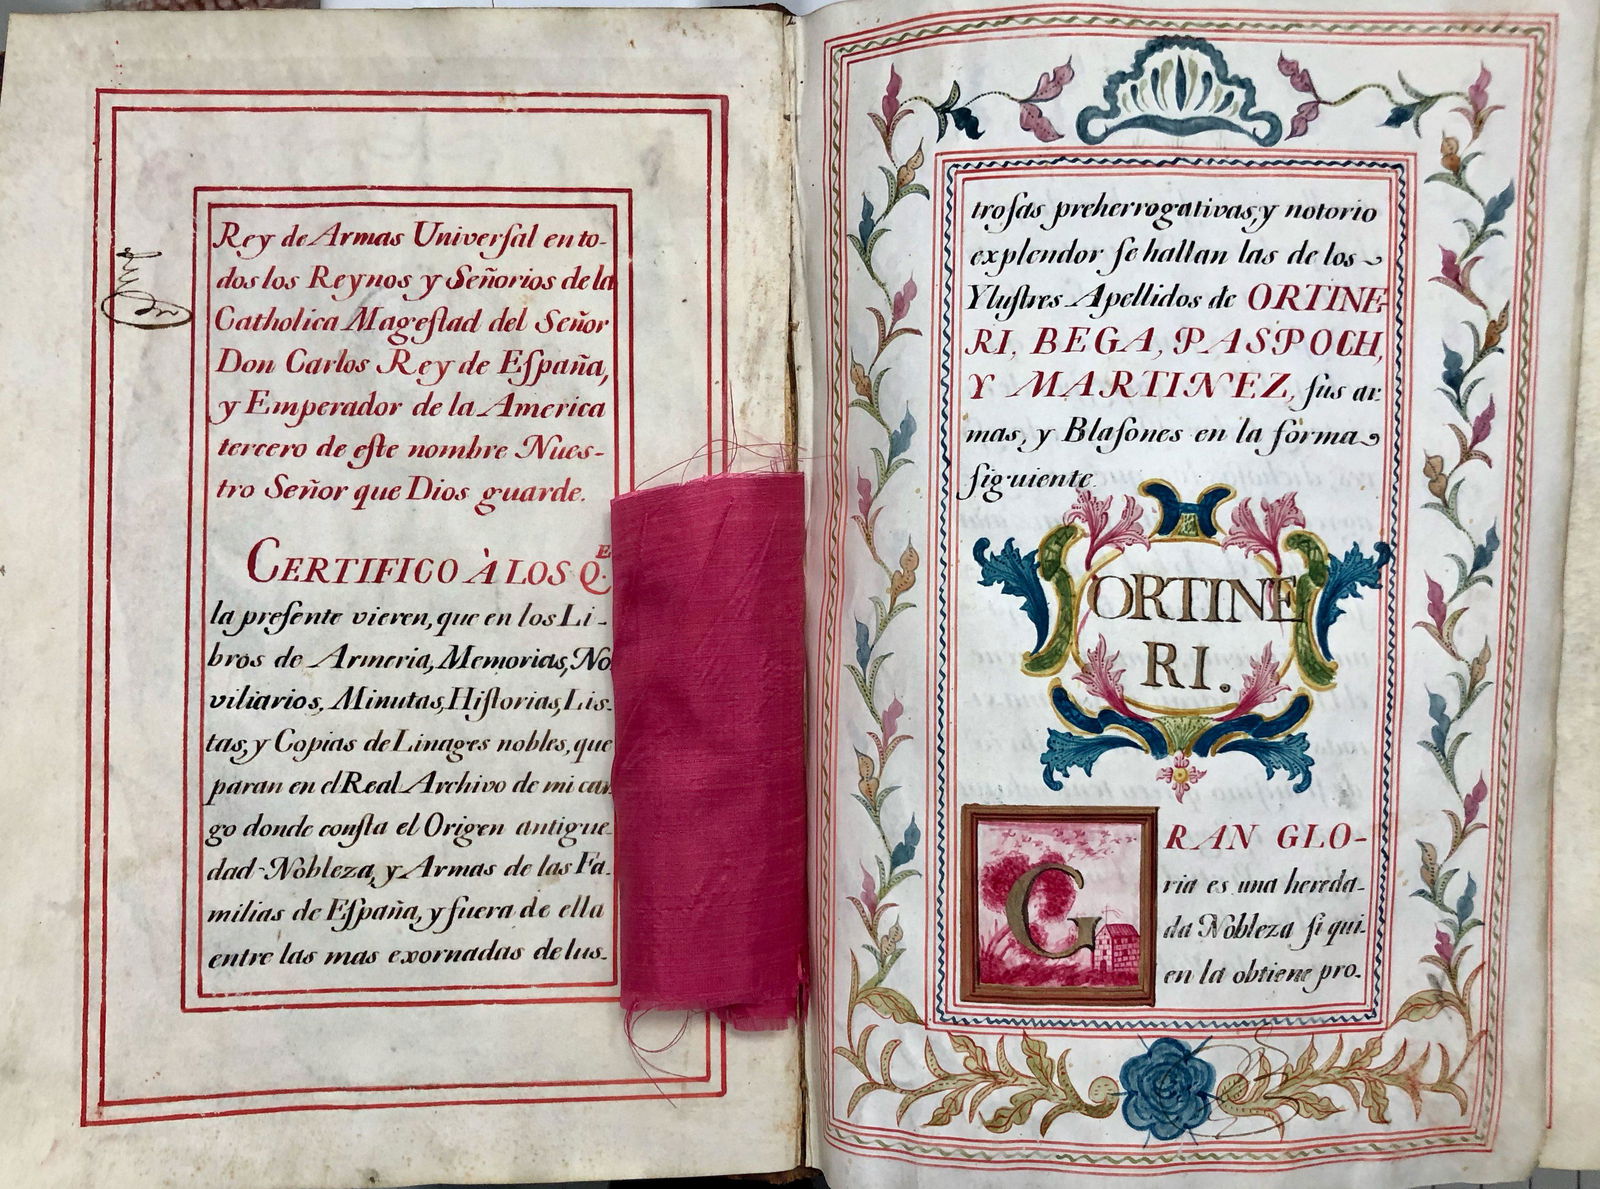 Rey de Armas Universal en to-
dos los Reynos y Señorios de la
Catholica Magestad del Señor
Don Carlos Rey de España,
y Emperador de la America
tercero de este nombre Nues-
tro Señor que Dios guarde.
CERTIFICO À LOS Q.E
la presente vieren, que en los Li-
bros de Armeria, Memorias, No
viliarios, Minutas, Historias, Lis-
tas, y Copias de Linages nobles, que
paran en el Real Archivo de mi car
go donde consta el Origen antigue
dad Nobleza, y Armas de las Fa-
milias de España, y fuera de ella
entre las mas exornadas de lus-
trosas preherrogativas, y notorio
explendor se hallan las de los
Ylustres Apellidos de ORTINE-
RI, BEGA, PASPOCH,
Y MARTINEZ, sus ar-
mas, y Blasones en la forma
siguiente
ORTINE
RI.
GRAN GLO-
ria es una hereda-
da Nobleza si qui-
en la obtiene pro-